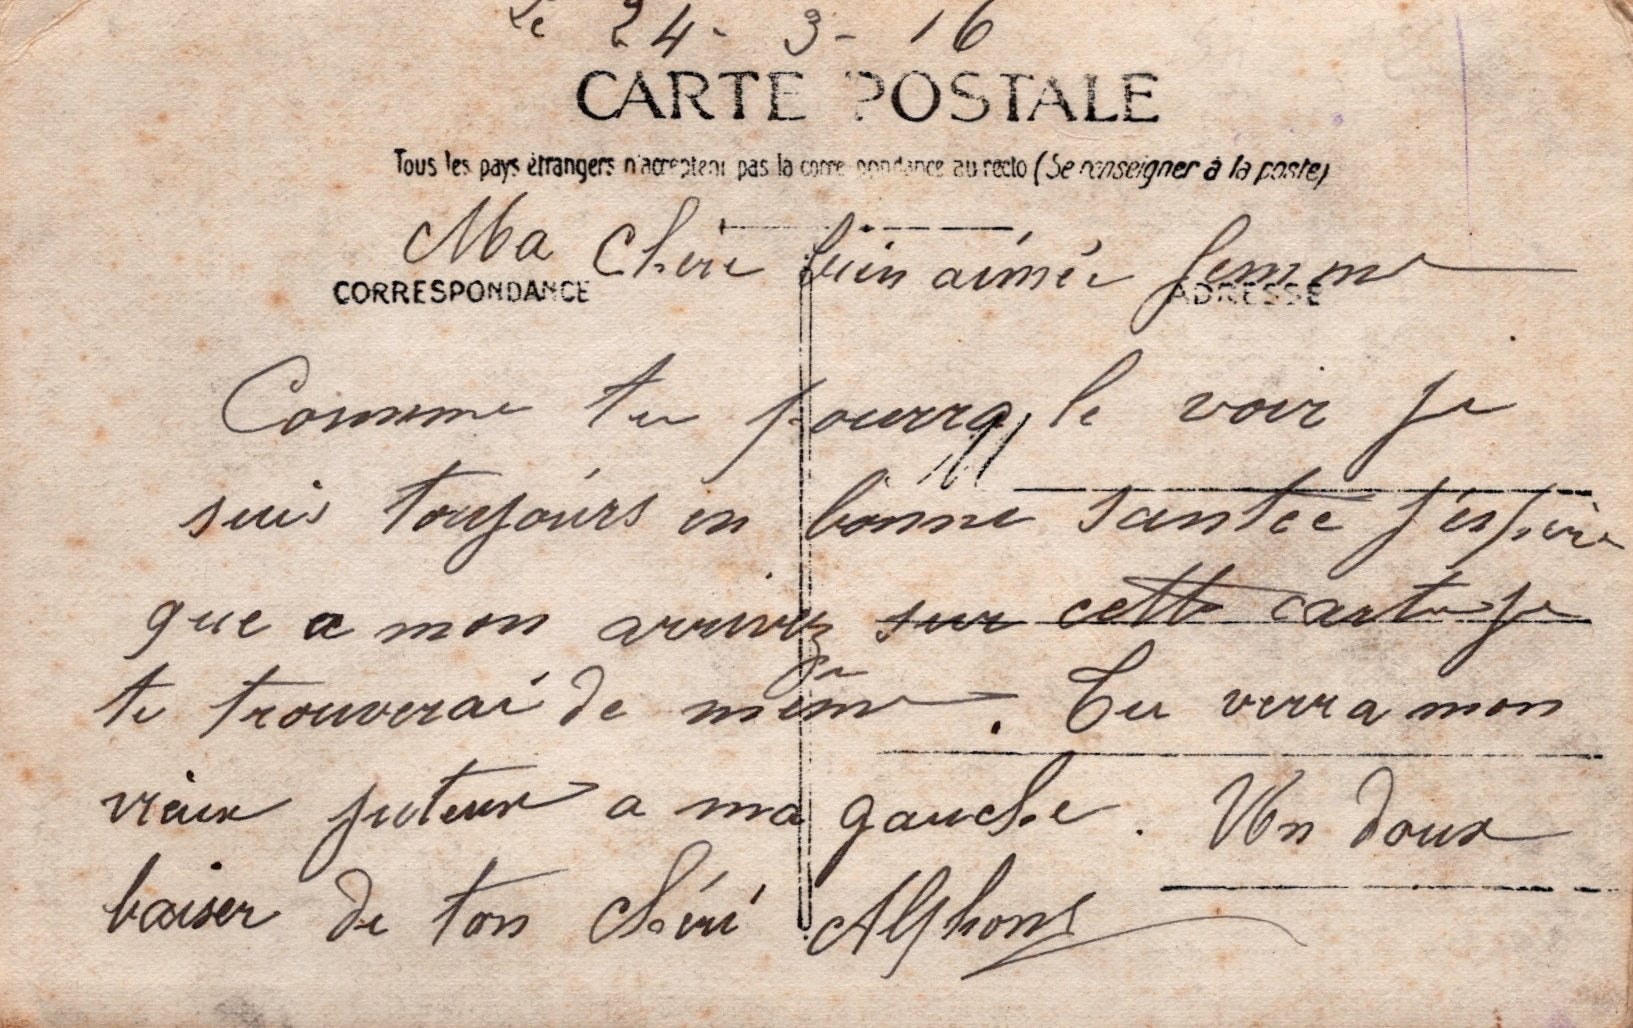 Le 24 - 3 - 16
CARTE POSTALE
Tous les pays étrangers n'acceptent pas la correspondance au recto (Se renseigner à la poste)
Ma Chère bien aimée femme
CORRESPONDANCE ADRESSE
Comme tu pourra le voir je
suis toujours en bonne santée j'éspère
que a mon arrivez sur cette carte je
te trouverai de même. Tu verra mon
vieux juteux a ma gauche. Un doux
baiser de ton chéri Alphons